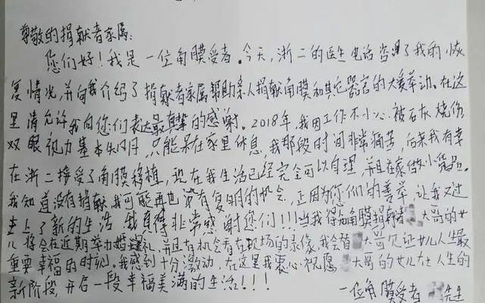 尊敬的捐献者家属:
您们好!我是一位角膜受者。今天,浙二的医生电话咨询了我的恢
复情况,并向我介绍了捐献者家属帮助亲人捐献角膜和其它器官的大爱举动。在这
里请允许我向您们表达最真挚的感谢。2018年,我因工作不小心被石灰烧伤
双眼视力基本失明,只能呆在家里休息,我那段时间非常痛苦,后来我有幸
在浙二接受了角膜移植,现在我生活已经完全可以自理,并且在家做小
我知道没有捐献我可能再也没有复明的机会,正因为您们的善举,让我又过
上了新的生活,我真得非常感谢您们!!!当我得知角膜捐献 大哥的女
儿将会在近期举办婚礼,并且有机会看到现场的录像,我会替 大哥见证女儿人生最
重要幸福的时刻,我感到十分激动,在这里我衷心祝愿 大哥的女儿在人生的
新阶段,开启一段幸福美满的生活!!!
一位角膜受者 先生